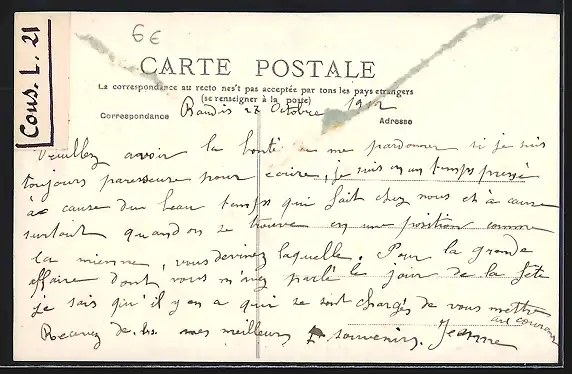 6€
Cons. L. 21
CARTE POSTALE
La correspondance au recto nes't pas acceptée par tons les pays etrangers
(se renseigner à la poste)
Correspondance
Adresse
27 Octobre 1912
Veuillez avoir la bonté de me pardonner si je suis
toujours paresseuse pour écrire, je suis un temps pressé
à cause du beau temps qui fait chez nous et à cause
surtout quand on se trouve en une position comme
la mienne, vous devinez laquelle. Pour la grande
affaire dont vous m'avez parlé le jour de la fête
je sais qu'il y en a qui se sont chargés de vous mettre
au courant
Recevez mes meilleurs souvenirs. Jeanne